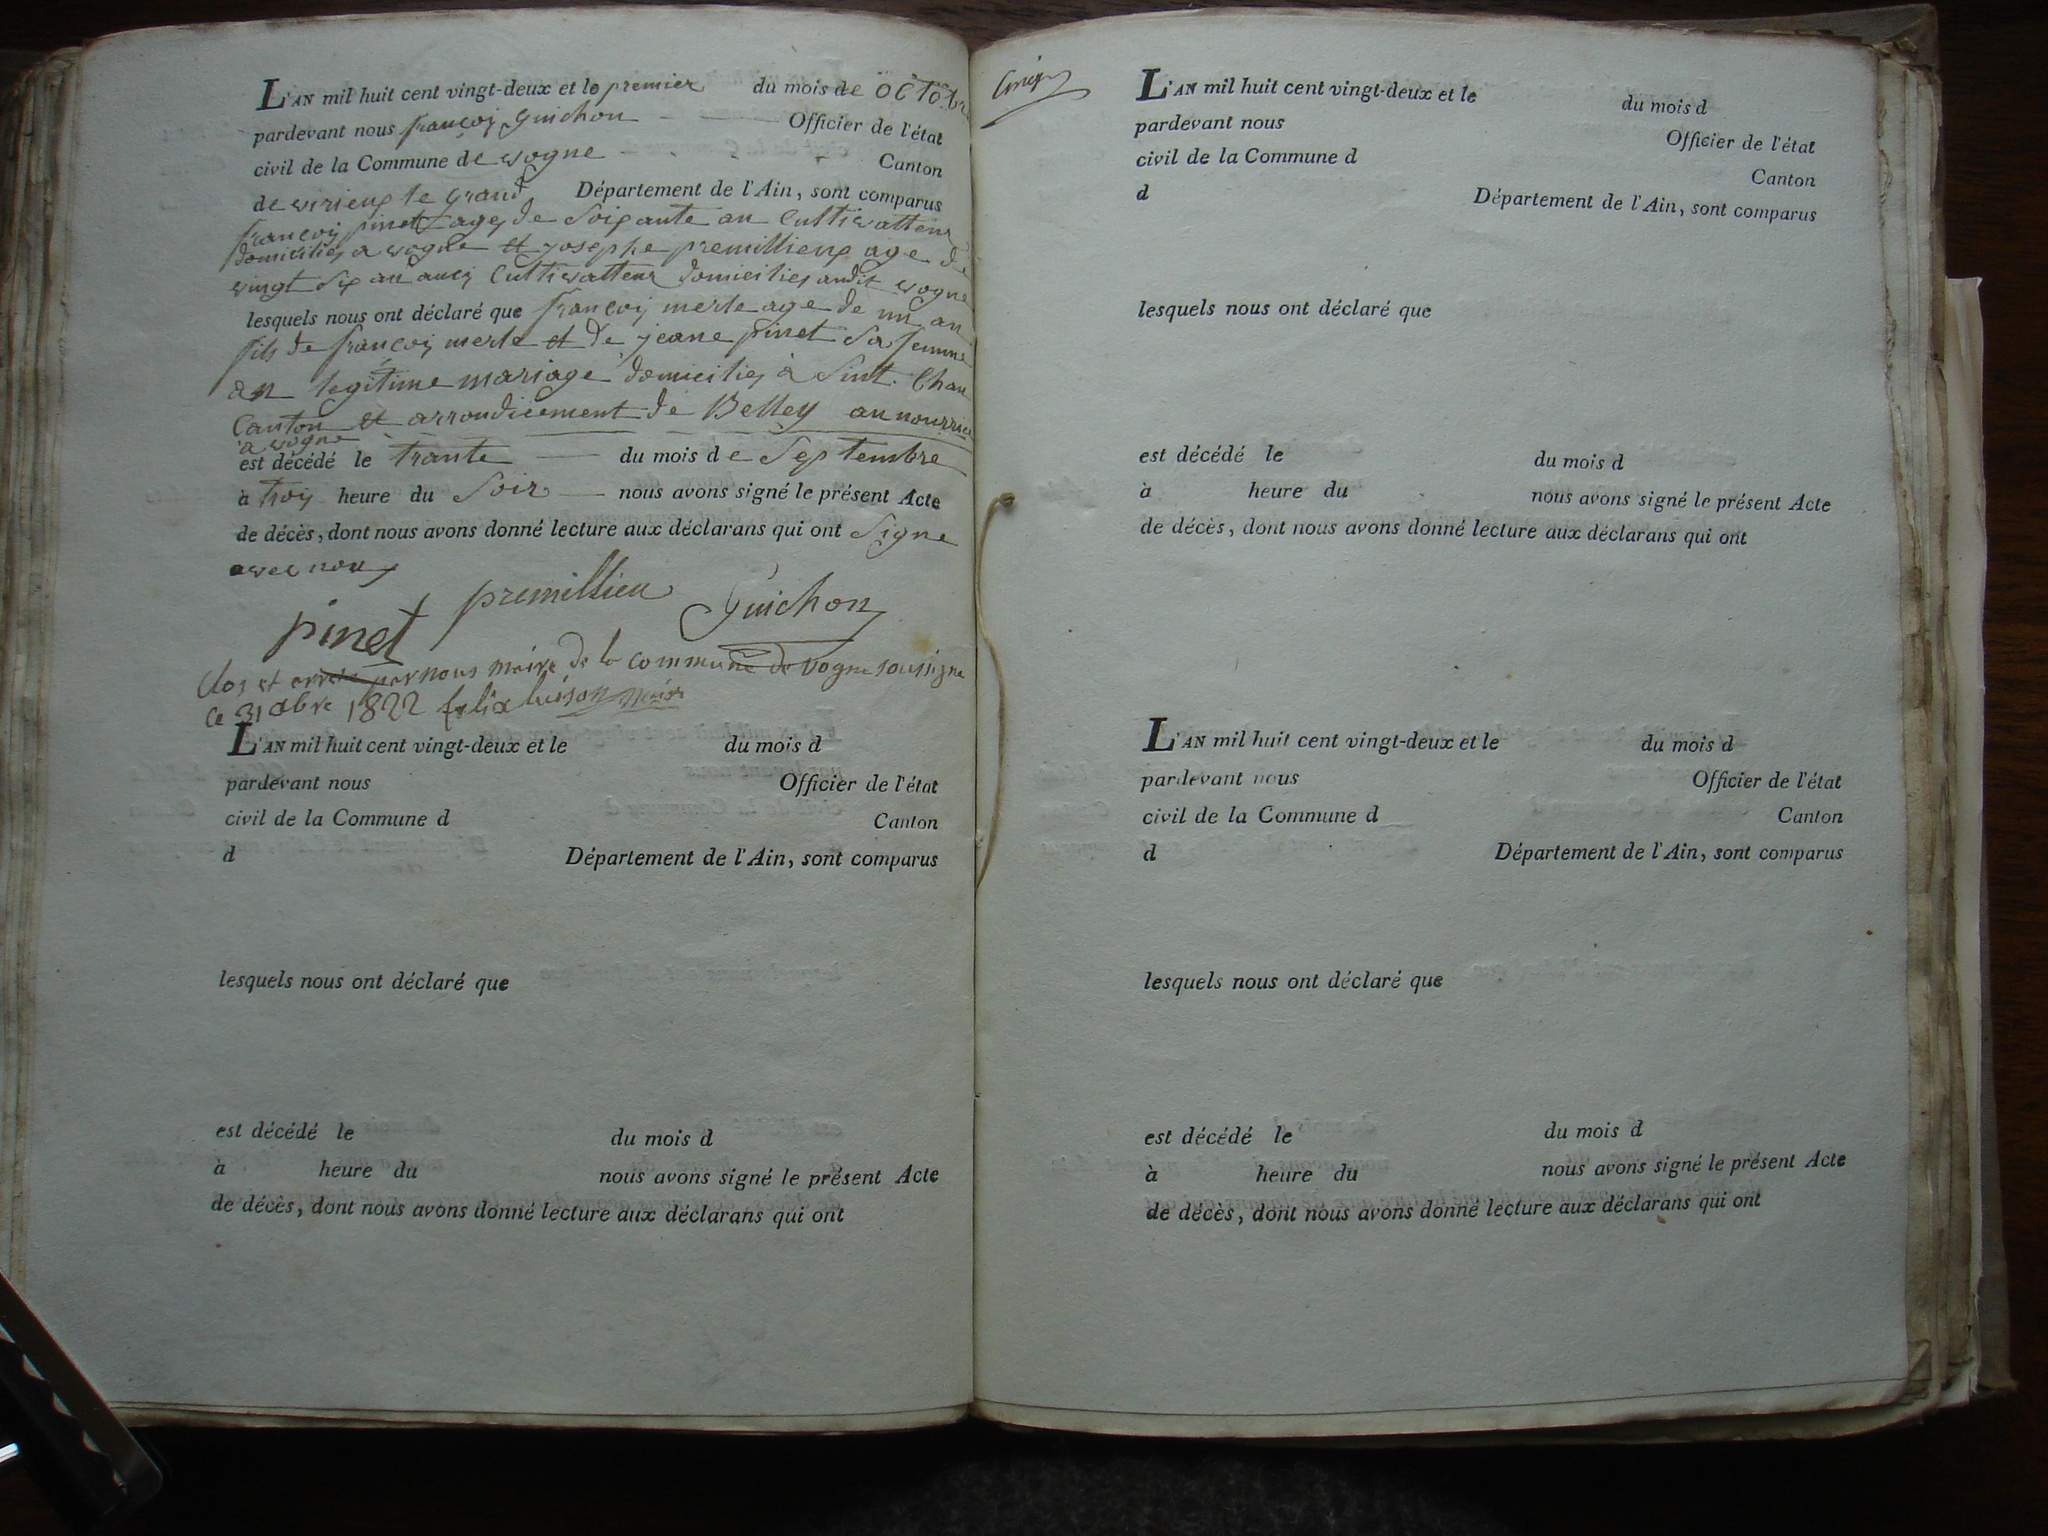 L'AN mil huit cent vingt-deux et le premier du mois de octobre
pardevant nous françois Guichon Officier de l'état
civil de la Commune de vogne Canton
de virieux le grand Département de l'Ain, sont comparus
françois pinet agés de soixante an Cultivatteur
domiciliés a vogne et josephe premillieux age de
vingt six an aucy Cultivatteur domiciliés audit vogne
lesquels nous ont déclaré que françois merle age de un an
fils de françois merle et de jeane pinet sa femme
an legitime mariage domiciliés à Sint. Chan
Canton et arrondicement de Belley au nourrice
a vogne
est décédé le trante du mois de Septembre
à trois heure du Soir nous avons signé le présent Acte
de décès, dont nous avons donné lecture aux déclarans qui ont Signe
avec nous
premillieu Guichon
pinet
Clos et arreté par nous maire de la commune de vogne soussigné
ce 31 dbre 1822 felix luison maire
L'AN mil huit cent vingt-deux et le du mois d
pardevant nous Officier de l'état
civil de la Commune d Canton
d Département de l'Ain, sont comparus
lesquels nous ont déclaré que
est décédé le du mois d
à heure du nous avons signé le présent Acte
de décès, dont nous avons donné lecture aux déclarans qui ont
L'AN mil huit cent vingt-deux et le du mois d
pardevant nous Officier de l'état
civil de la Commune d Canton
d Département de l'Ain, sont comparus
lesquels nous ont déclaré que
est décédé le du mois d
à heure du nous avons signé le présent Acte
de décès, dont nous avons donné lecture aux déclarans qui ont
L'AN mil huit cent vingt-deux et le du mois d
pardevant nous Officier de l'état
civil de la Commune d Canton
d Département de l'Ain, sont comparus
lesquels nous ont déclaré que
est décédé le du mois d
à heure du nous avons signé le présent Acte
de décès, dont nous avons donné lecture aux déclarans qui ont